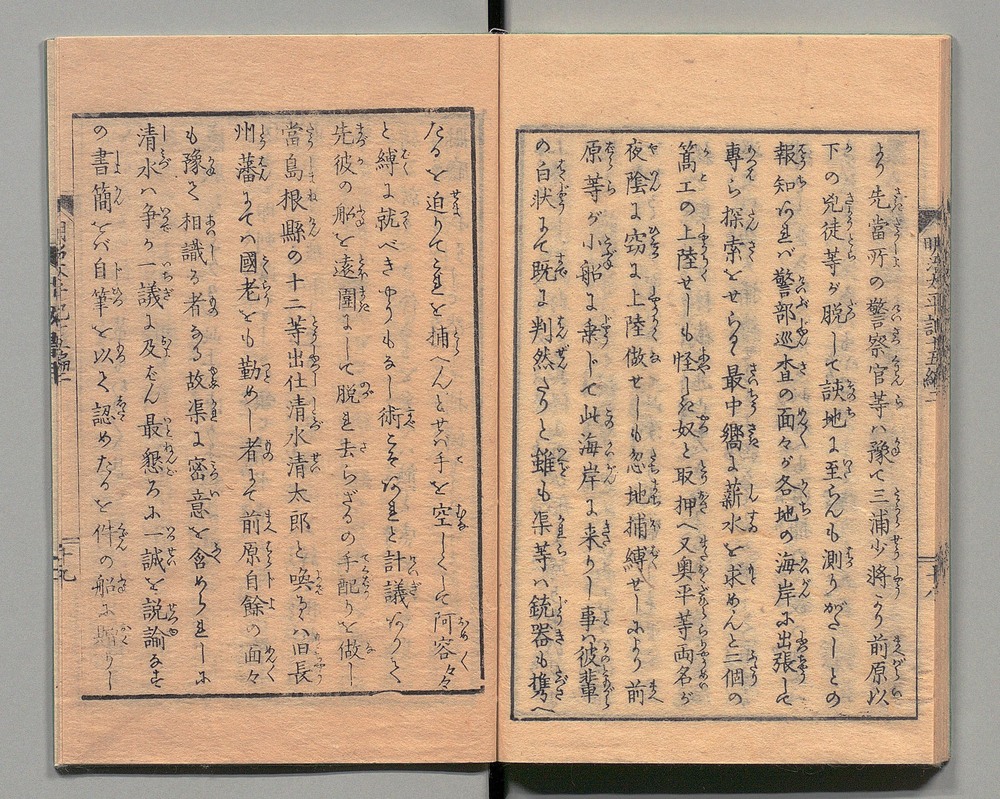 より先當所の警察官等ハ豫て三浦少將より前原以
下の兇徒等が脱して該地に至らんも測りがたしとの
報知あれバ警部巡査の面々が各地の海岸に出張して
專ら探索をせらる最中嚮に薪水を求めんと二個の
篙工の上陸せしも怪しき奴と取押へ又奥平等両名が
夜陰に窃に上陸做せしも忽地捕縛せしにより前
原等が小船に乗じて此海岸に来りし事ハ彼輩
の白状にて既に判然たりと雖も渠等ハ銃器も携へ
たるを迫りてこれを捕へんとせバ手を空しくして阿容々々
と縛に就べきやうもなし術こそあれと計議りて
先彼の船を遠圍にして脱れ去らざるの手配りを做し
當島根縣の十二等出仕清水清太郎と喚るハ旧長
州藩にてハ國老をも勤めし者にて前原自餘の面々
も豫て相識る者なる故渠に密意を含められしに
清水ハ争か一議に及ばん最懇ろに一誠を説諭なす
の書簡をバ自筆を以て認めたるを件の船に贈りし